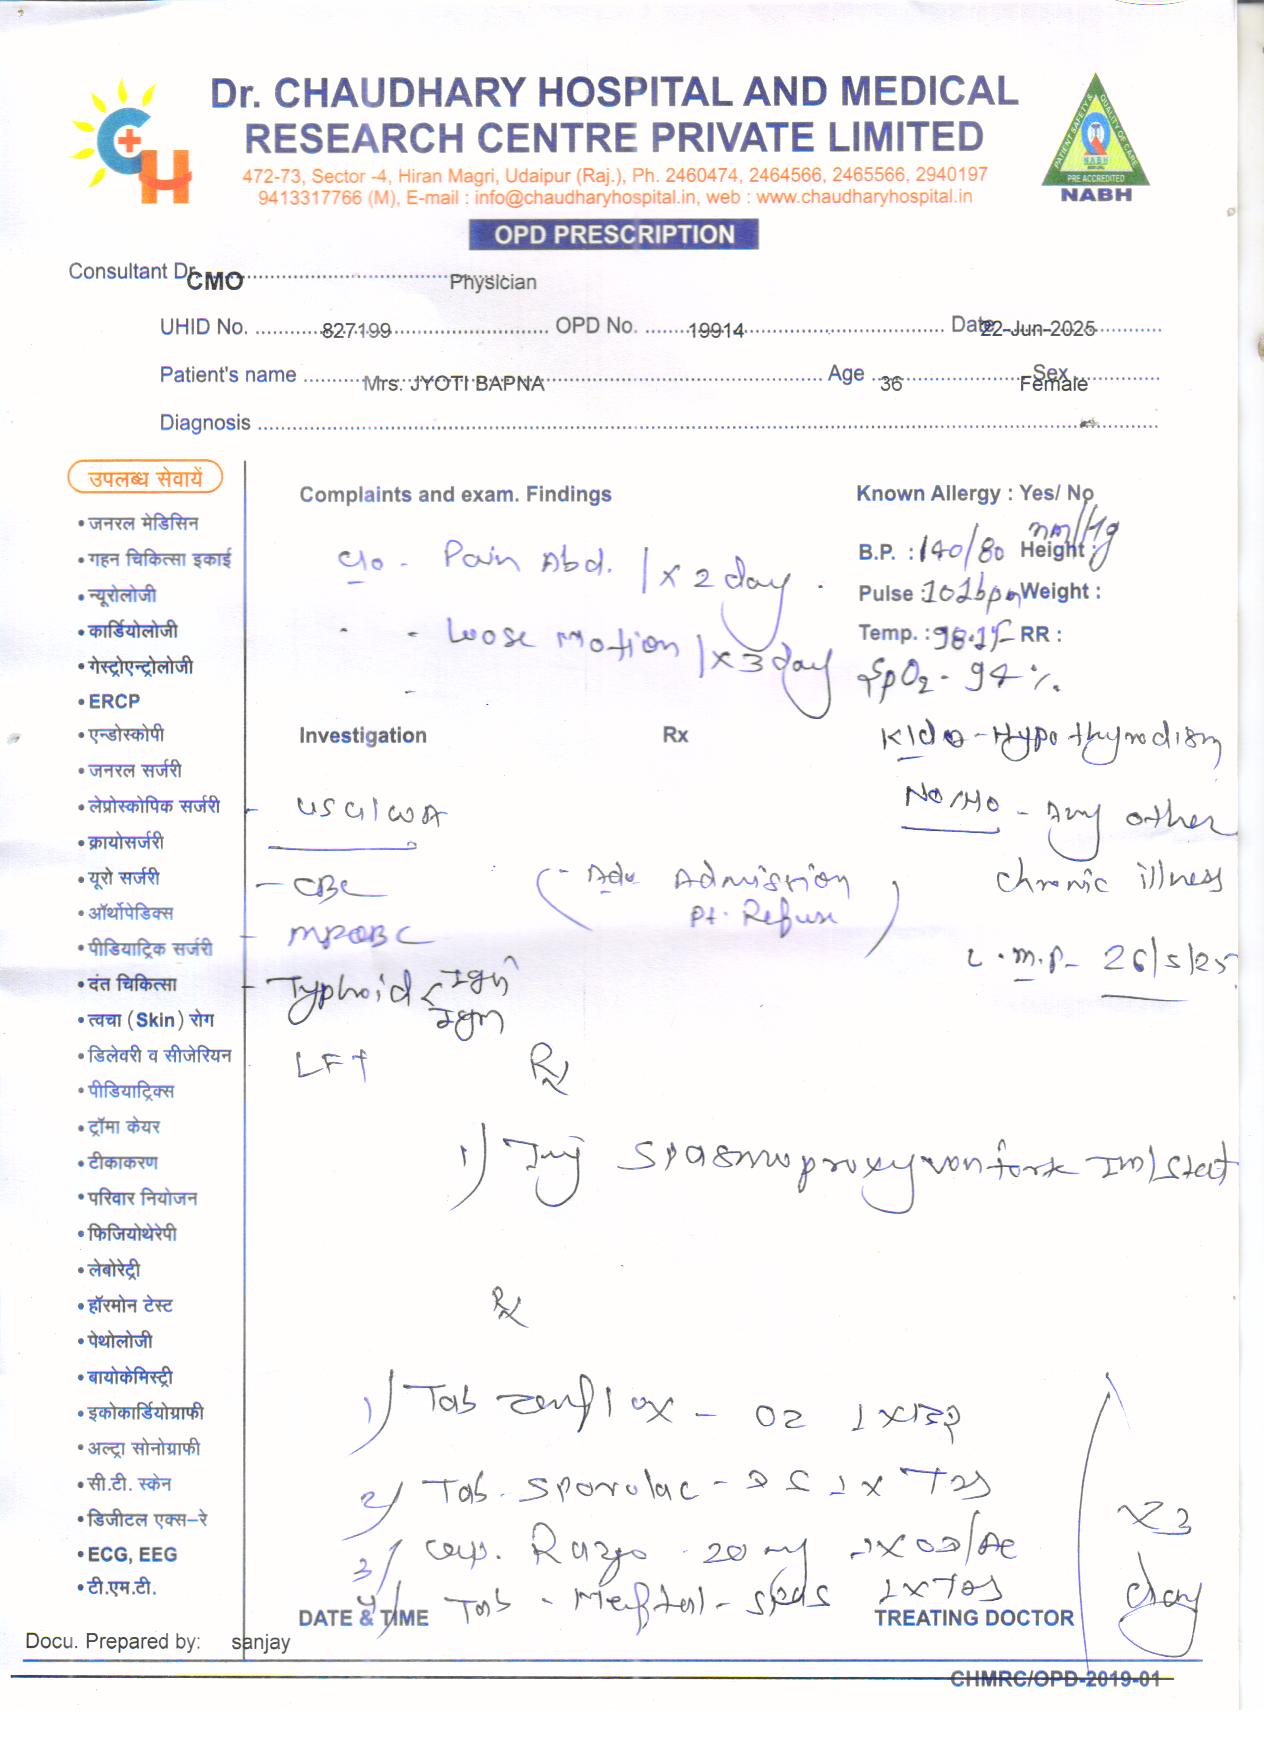 Dr. CHAUDHARY HOSPITAL AND MEDICAL
RESEARCH CENTRE PRIVATE LIMITED
472-73, Sector -4, Hiran Magri, Udaipur (Raj.), Ph. 2460474, 2464566, 2465566, 2940197
9413317766 (M), E-mail : info@chaudharyhospital.in, web : www.chaudharyhospital.in
PATIENT SAFETY & QUALITY OF CARE
NABH
PRE ACCREDITED
NABH
OPD PRESCRIPTION
Consultant Dr. CMO Physician
UHID No. 827199 OPD No. 19914 Date 22-Jun-2025
Patient's name Mrs. JYOTI BAPNA Age 36 Sex Female
Diagnosis
उपलब्ध सेवायें
• जनरल मेडिसिन
• गहन चिकित्सा इकाई
• न्यूरोलोजी
• कार्डियोलोजी
• गेस्ट्रोएन्ट्रोलोजी
• ERCP
• एन्डोस्कोपी
• जनरल सर्जरी
• लेप्रोस्कोपिक सर्जरी
• क्रायोसर्जरी
• यूरो सर्जरी
• ऑर्थोपेडिक्स
• पीडियाट्रिक सर्जरी
• दंत चिकित्सा
• त्वचा (Skin) रोग
• डिलेवरी व सीजेरियन
• पीडियाट्रिक्स
• ट्रॉमा केयर
• टीकाकरण
• परिवार नियोजन
• फिजियोथेरेपी
• लेबोरेट्री
• हॉरमोन टेस्ट
• पेथोलोजी
• बायोकेमिस्ट्री
• इकोकार्डियोग्राफी
• अल्ट्रा सोनोग्राफी
• सी.टी. स्केन
• डिजीटल एक्स-रे
• ECG, EEG
• टी.एम.टी.
Complaints and exam. Findings
c/o - Pain Abd. / x 2 day
- Loose motion / x 3 day
Known Allergy : Yes/ No
B.P. : 140/80 mm/Hg Height :
Pulse : 102bpm Weight :
Temp. : 98.2F RR :
SpO2 - 94 %
K/c/o - Hypothyrodism
NO/HO - Any other
chronic illness
L.M.P - 26/5/25
Investigation Rx
- USG/WA
- CBC
- MPQBC
- Typhoid < IgG
IgM
LFT
( - Adv Admission
Pt. Refuse )
Rx
1) Inj Spasmoproxyvon fork IM/Stat
Rx
1) Tab Zenflox - OZ 1 x BD
2) Tab. Sporolac - DS 1 x TDS
3) Cap. Razo 20 mg 1 x OD/AC
4) Tab - Meftal - spas 1 x TDS
x 3
day
DATE & TIME TREATING DOCTOR
Docu. Prepared by: sanjay
CHMRC/OPD-2019-01